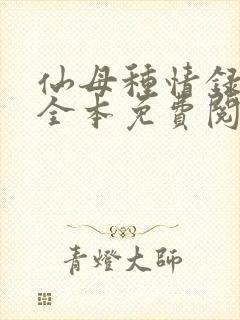 仙母種情録
全本免費閱
青燈大師